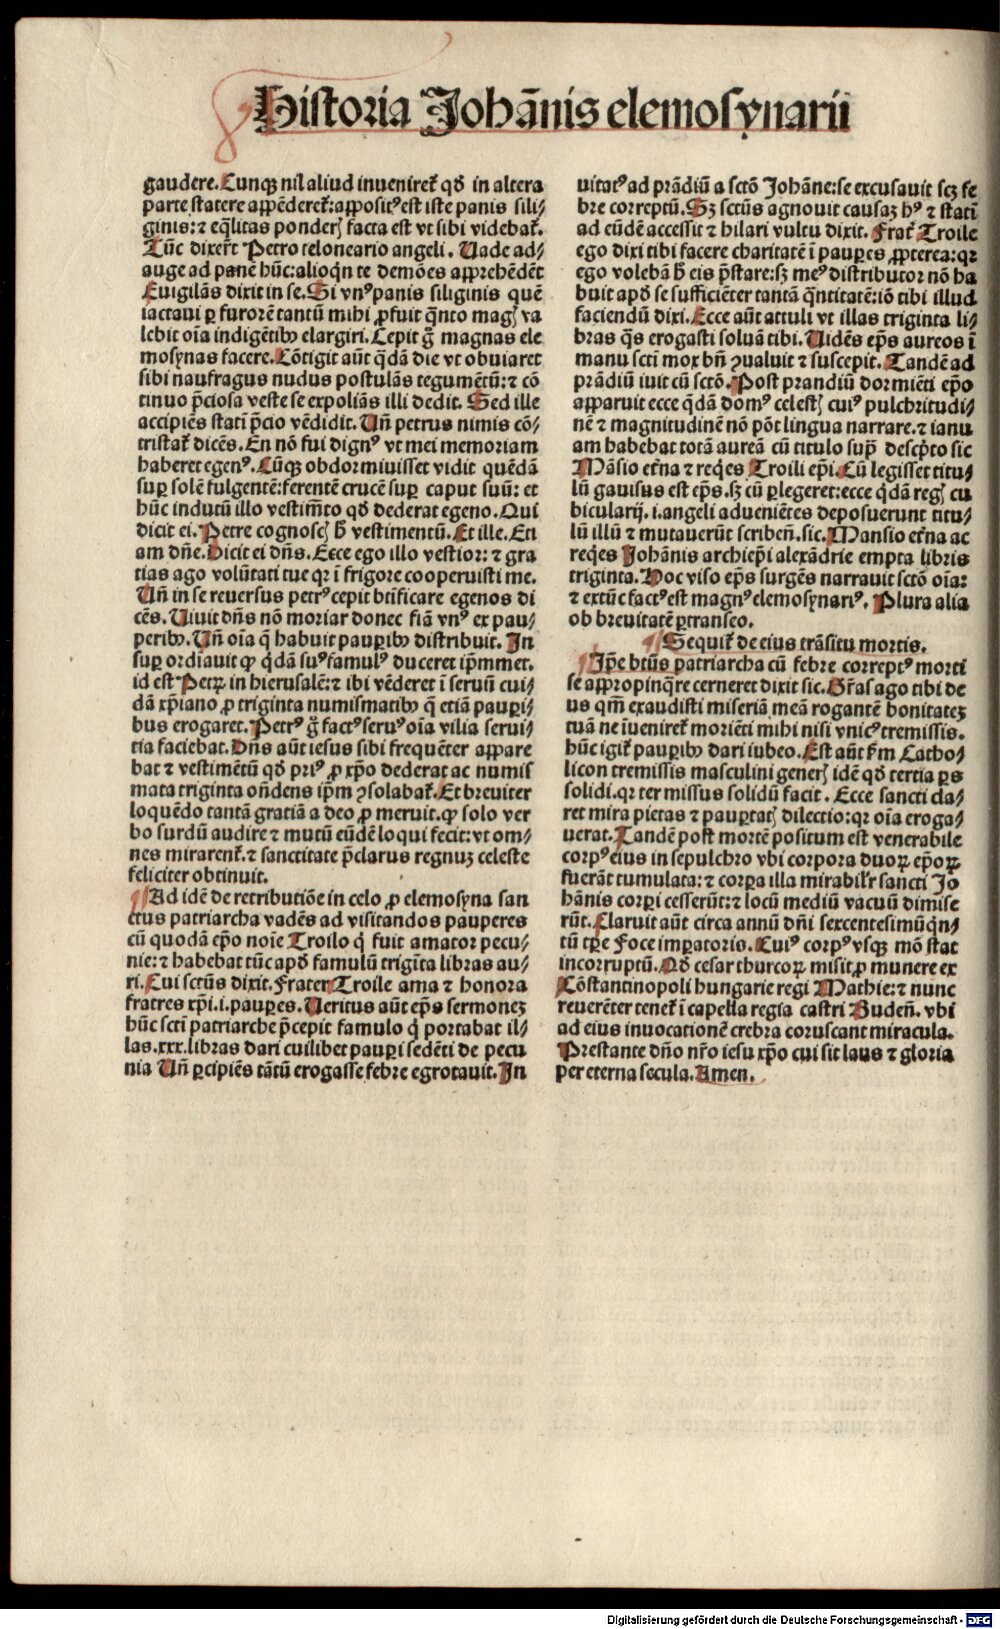 Historia Johãnis elemosynarii
gaudere. Cunqꝫ nil aliud inueniret᷑ qđ in altera
parte statere appẽderet᷑: apposit⁹ est iste panis sili⸗
ginis: ⁊ eq̃litas ponderꝭ facta est vt sibi videbat᷑.
Tũc dixer̃t Petro teloneario angeli. Uade ad⸗
auge ad panẽ hũc: alioqñ te demões apprehẽdẽt
Euigilãs dixit in se. Si vn⁹ panis siliginis quẽ
iactaui ꝑ furorẽ tantũ mihi ꝓfuit q̃nto magꝭ va
lebit oĩa indigẽtibꝰ elargiri. Cepit g̃ magnas ele
mosynas facere. Cõtigit aũt q̃dã die vt obuiaret
sibi naufragus nudus postulãs tegumẽtũ: ⁊ cõ
tinuo p̃ciosa veste se expoliãs illi dedit. Sed ille
accipiẽs stati p̃cio vẽdidit. Uñ petrus nimis cõ⸗
tristat᷑ dicẽs. En nõ fui dign⁹ vt mei memoriam
haberet egen⁹. Cũqꝫ obdormiuisset vidit quẽdã
suꝑ solẽ fulgentẽ: ferentẽ crucẽ suꝑ caput suũ: et
hũc indutũ illo vestim̃to qđ dederat egeno. Qui
dicit ei. Petre cognoscꝭ h̃ vestimentũ. Et ille. Eti
am dñe. Dicit ei dñs. Ecce ego illo vestior: ⁊ gra
tias ago volũtati tue qꝛ ĩ frigore cooperuisti me.
Uñ in se reuersus petr⁹ cepit btĩficare egenos di
cẽs. Uiuit dñs nõ moriar donec fiã vn⁹ ex pau⸗
peribꝰ. Uñ oĩa q̃ habuit pauꝑibꝰ distribuit. In
suꝑ ordĩauit ꝙ q̇dã su⁹ famul⁹ duceret ip̃mmet.
id est Petrꝝ in hierusalẽ: ⁊ ibi vẽderet ĩ seruũ cui⸗
dã xp̃iano ꝓ triginta numismatibꝰ q̃ etiã pauꝑi⸗
bus erogaret. Petr⁹ g̃ fact⁹ seru⁹ oĩa vilia serui⸗
tia faciebat. Dñs aũt iesus sibi frequẽter appare
bat ⁊ vestimẽtũ qđ pri⁹ ꝓ xp̃o dederat ac numis
mata triginta oñdens ip̃m ꝯsolabat᷑. Et breuiter
loquẽdo tantã gratiã a deo ꝓmeruit. ꝙ solo ver
bo surdũ audire ⁊ mutũ eũdẽ loqui fecit: vt om⸗
nes mirarent᷑. ⁊ sanctitate p̃clarus regnuꝫ celeste
feliciter obtinuit.
¶ Ad idẽ de retributiõe in celo ꝓ elemosyna san
ctus patriarcha vadẽs ad visitandos pauperes
cũ quodã ep̃o noĩe Troilo q̇ fuit amator pecu⸗
nie: ⁊ habebat tũc apđ famulũ trigĩta libras au⸗
ri. Cui sctũs dixit. Frater Troile ama ⁊ honora
fratres xp̃i .i. pauꝑes. Ueritus aũt ep̃s sermoneꝫ
hũc scti patriarche p̃cepit famulo q̇ portabat il⸗
las .xxx. libras dari cuilibet pauꝑi sedẽti de pecu
nia Uñ ꝑcipiẽs tãtũ erogasse febre egrotauit. In
uitat⁹ ad prãdiũ a sctõ Johãne: se excusauit scꝫ fe
bre correptũ. Sꝫ sctũs agnouit causaꝫ h⁹ ⁊ stati
ad eũdẽ accessit ⁊ hilari vultu dixit. Frat᷑ Troile
ego dixi tibi facere charitatẽ ĩ pauꝑes ꝓpterea: qꝛ
ego volebã h̃ eis p̃stare: sꝫ me⁹ distributor nõ ha
buit apđ se sufficiẽter tantã q̃ntitatẽ: iõ tibi illud
faciendũ dixi. Ecce aũt attuli vt illas triginta li⸗
bras q̃s erogasti soluã tibi. Uidẽs ep̃s aureos ĩ
manu scti mox bñ ꝯualuit ⁊ suscepit. Tandẽ ad
prãdiũ iuit cũ sctõ. Post prandiũ dormiẽti ep̃o
apparuit ecce q̇dã dom⁹ celestꝭ cui⁹ pulchritudi⸗
nẽ ⁊ magnitudinẽ nõ põt lingua narrare. ⁊ ianu
am habebat totã aureã cũ titulo sup̃ descp̃to sic
Mãsio et̃na ⁊ reqͥes Troili ep̃i. Cũ legisset titu⸗
lũ gauisus est ep̃s. sꝫ cũ ꝑlegeret: ecce q̇dã regꝭ cu
bicularij .i. angeli aduenıẽtes deposuerunt titu⸗
lũ illũ ⁊ mutauerũt scribeñ. sic. Mansio et̃na ac
reqͥes Johãnis archiep̃i alexãdrie empta libris
triginta. Hoc viso ep̃s surgẽs narrauit sctõ oĩa:
⁊ extũc fact⁹ est magn⁹ elemosynari⁹. Plura alia
ob breuitatẽ ꝑtranseo.
¶ Sequit᷑ de eius trãsitu mortis.
¶ Ip̃e btũs patriarcha cũ febre corrept⁹ morti
se appropinq̃re cerneret dixit sic. Gr̃as ago tibi de
us qm̃ exaudisti miseriã meã rogantẽ bonitateꝫ
tuã ne ĩueniret᷑ moriẽti mihi nisi vnic⁹ tremissis.
hũc igit᷑ pauꝑibꝰ dari iubeo. Est aũt fm̃ Catho⸗
licon tremissis masculini generꝭ idẽ qđ tertia ꝑs
solidi. qꝛ ter missus solidũ facit. Ecce sancti cla⸗
ret mira pietas ⁊ pauꝑtatꝭ dilectio: qꝛ oĩa eroga⸗
uerat. Tandẽ post mortẽ positum est venerabile
corp⁹ eius in sepulchro vbi corpora duoꝝ ep̃oꝝ
fuerãt tumulata: ⁊ corꝑa illa mirabilr̃ sancti Jo
hãnis corꝑi cesserũt: ⁊ locũ mediũ vacuũ dimise
rũt. Claruit aũt circa annũ dñi sexcentesimũq̃n⸗
tũ tp̃re Foce imꝑatoris. Cui⁹ corp⁹ vsqꝫ mõ stat
incorruptũ. Qđ cesar thurcoꝝ misit ꝓ munere ex
Cõstantinopoli hungarie regi Mathie: ⁊ nunc
reuerẽter tenet᷑ ĩ capella regia castri Budeñ. vbi
ad eius inuocationẽ crebra coruscant miracula.
Prestante dño nr̃o iesu xp̃o cui sit laus ⁊ gloria
per eterna secula. Amen.
Digitalisierung gefördert durch die Deutsche Forschungsgemeinschaft - DFG